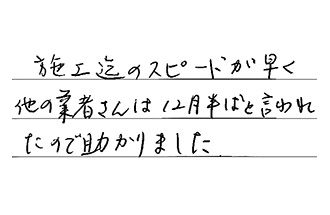 施工迄のスピードが早く
他の業者さんは12月半ばと言われ
たので助かりました